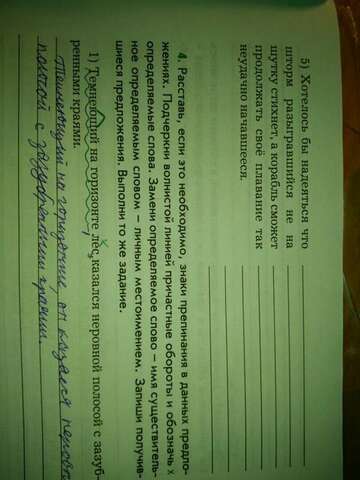 5) Хотелось бы надеяться что
шторм разыгравшийся не на
шутку стихнет, а корабль сможет
продолжать своё плавание так
неудачно начавшееся.
4. Расставь, если это необходимо, знаки препинания в данных предло-
жениях. Подчеркни волнистой линией причастные обороты и обозначь х
определяемые слова. Замени определяемое слово – имя существитель-
ное определяемым словом – личным местоимением. Запиши получив-
шиеся предложения. Выполни то же задание.
1) Темнеющий на горизонте лес, казался неровной полосой с зазуб-
ренными краями.
Темнеющий на горизонте, он казался неровн
полосой с зазубренными краями.